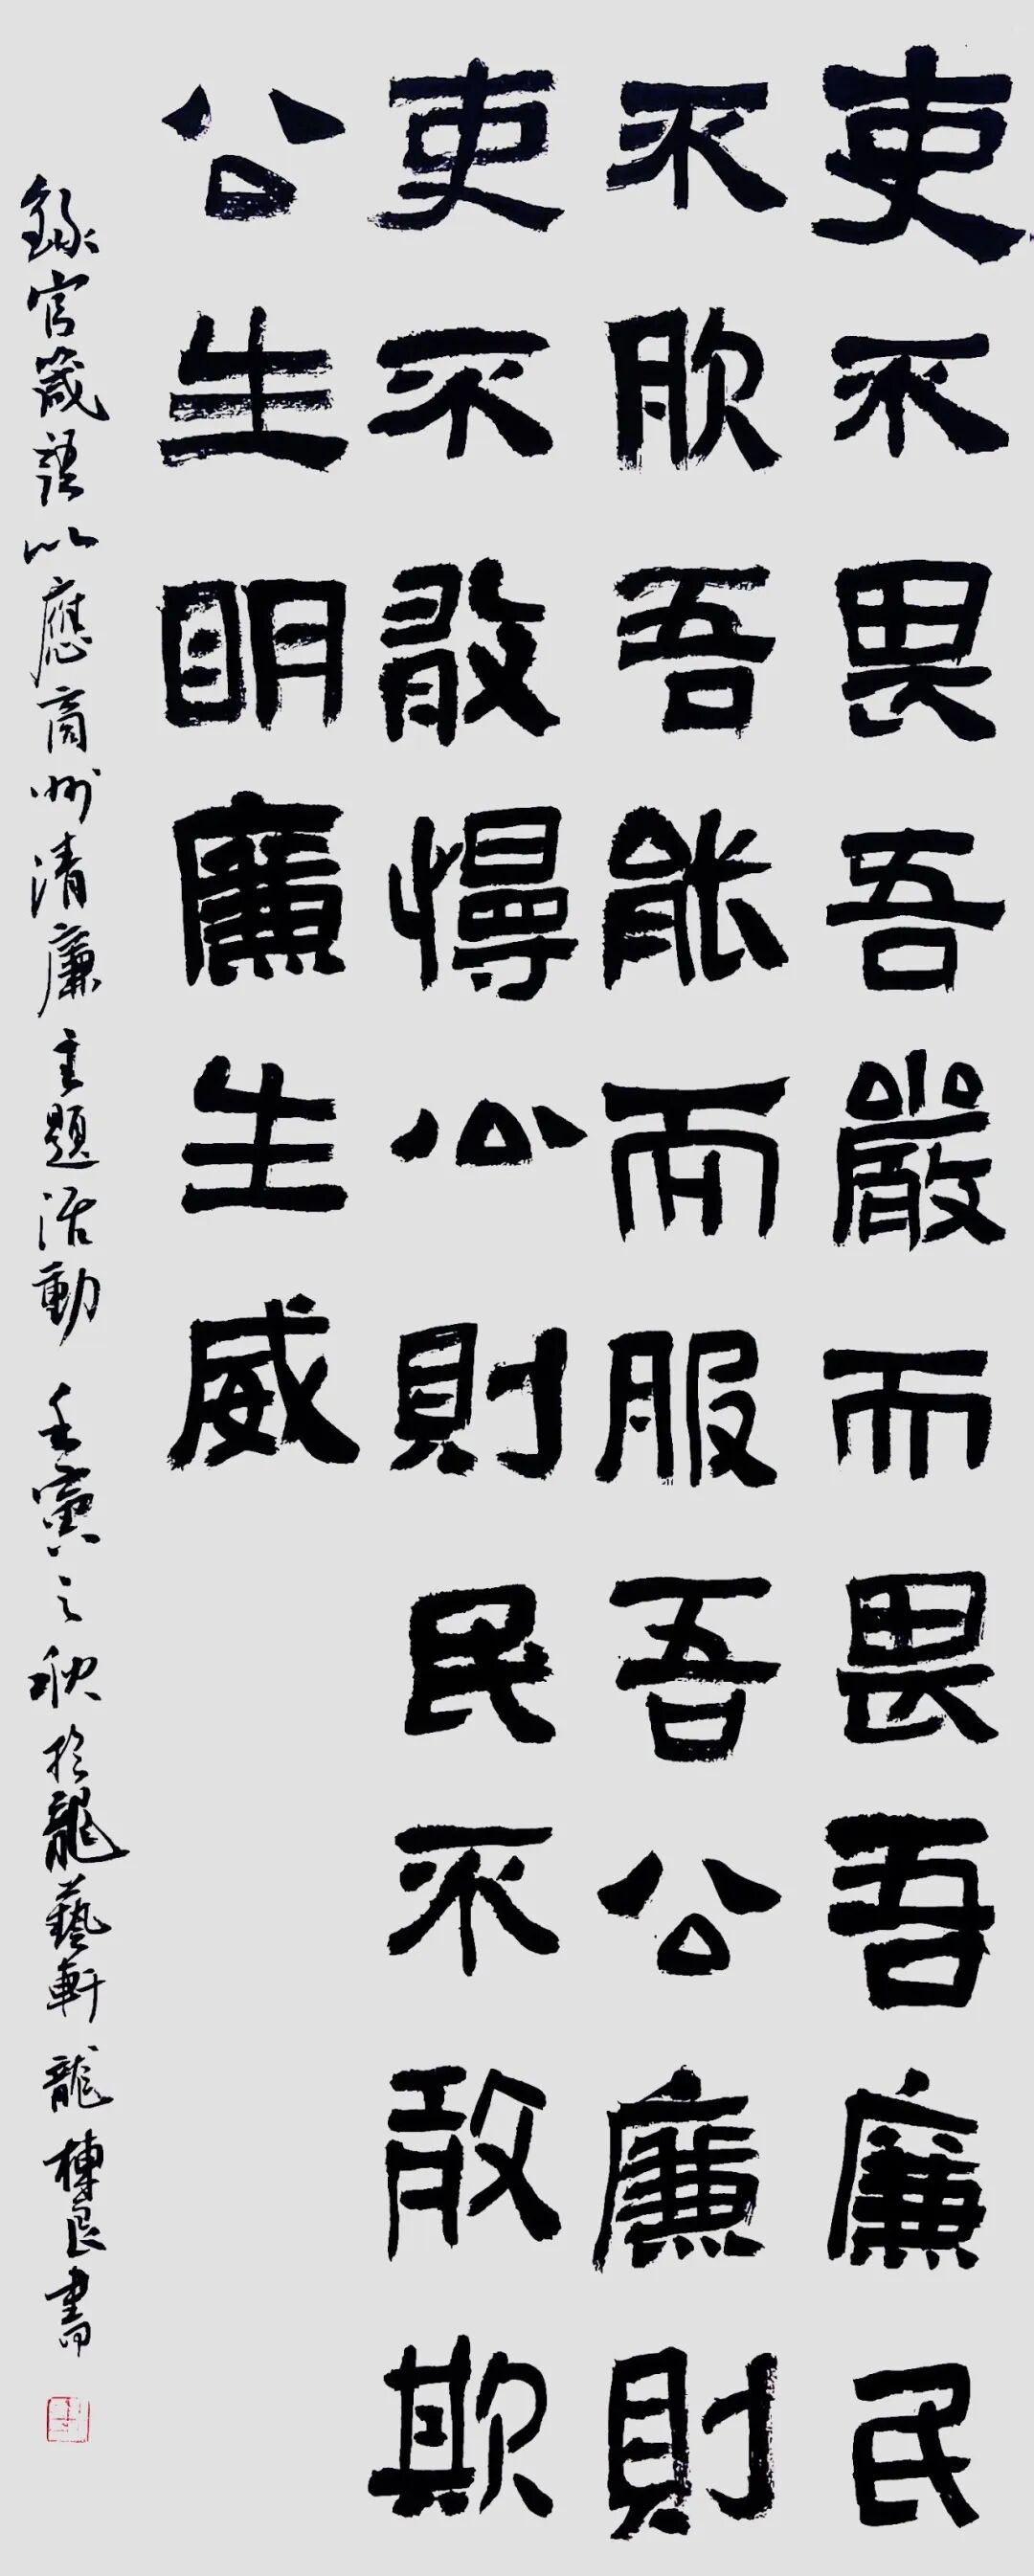 吏不畏吾嚴而畏吾廉民
不服吾能而服吾公廉則
吏不敢慢公則民不敢欺
公生明廉生威
錄官箴語以應商州清廉主題活動 壬寅之秋於龍藝軒 龍棟良書